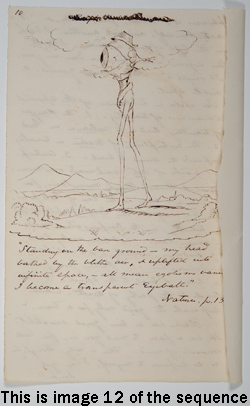 10
"Standing on the bare ground – my head
bathed by the blithe air, & uplifted into
infinite space, – all mean egotism vanishes.
I become a transparent Eyeball."
Nature, p. 13
This is image 12 of the sequence